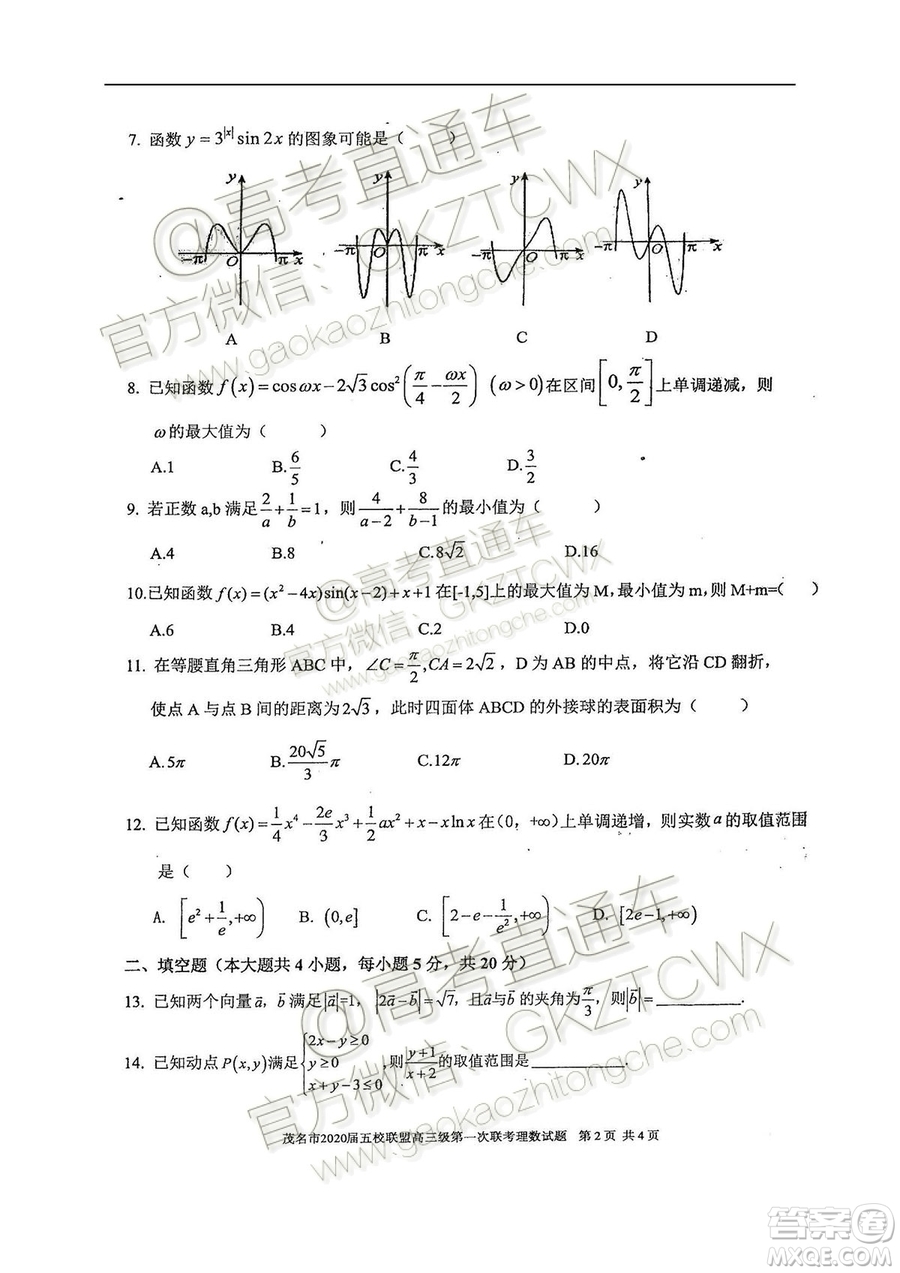 7. 函数 y=3^{|x|} sin 2x 的图象可能是（　　）
y y y y
-π O π x -π O π x -π O π x -π O π x
A B C D
8. 已知函数 f(x)=cosωx-2√3cos²(π/4-ωx/2) (ω>0)在区间[0,π/2]上单调递减，则
ω的最大值为（　　）
A.1 B.6/5 C.4/3 D.3/2
9. 若正数 a,b 满足 2/a+1/b=1，则 4/(a-2)+8/(b-1) 的最小值为（　　）
A.4 B.8 C.8√2 D.16
10.已知函数 f(x)=(x²-4x)sin(x-2)+x+1 在[-1,5]上的最大值为 M,最小值为 m,则 M+m=（　　）
A.6 B.4 C.2 D.0
11. 在等腰直角三角形 ABC 中，∠C=π/2,CA=2√2，D 为 AB 的中点，将它沿 CD 翻折，
使点 A 与点 B 间的距离为2√3，此时四面体 ABCD 的外接球的表面积为（　　）
A.5π B.20√5/3 π C.12π D.20π
12. 已知函数 f(x)=1/4 x⁴-2e/3 x³+1/2 ax²+x-xlnx 在（0，+∞）上单调递增，则实数a的取值范围
是（　　）
A. [e²+1/e,+∞) B. (0,e] C. [2-e-1/e²,+∞) D. [2e-1,+∞)
二、填空题（本大题共 4 小题，每小题 5 分，共 20 分）
13. 已知两个向量a⃗，b⃗ 满足|a⃗|=1，|2a⃗-b⃗|=√7，且a⃗与b⃗ 的夹角为π/3，则|b⃗|=________.
14. 已知动点 P(x,y)满足{2x-y≥0 y≥0 x+y-3≤0 ,则(y+1)/(x+2)的取值范围是________.
茂名市2020届五校联盟高三级第一次联考理数试题 第 2 页 共 4 页
@高考直通车
官方微信：GKZTCWX
www.gaokaozhitongche.com
@高考直通车
官方微信：GKZTCWX
www.gaokaozhitongche.com
@高考直通车
官方微信：GKZTCWX
www.gaokaozhitongche.com
答案圈
MXQE.COM